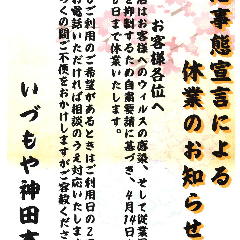 事態宣言による
休業のお知らせ
お客様各位へ
はお客様へのウイルスの感染、そして従業
を抑制するため自粛要請に基づき、4月14日
日まで休業いたします。
ご利用のご希望があるときはご利用日の2
お電話いただければ相談のうえ対応いたしま
くの間ご不便をおかけしますがご容赦くださ
いづもや神田